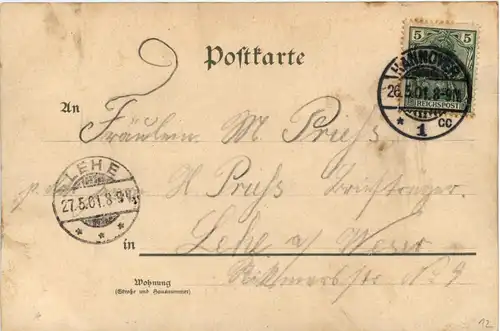 Postkarte
5 5
REICHSPOST
HANNOVER
26.5.01. 8-9N.
* 1 CC
An Fräulein M Priess
p. a. H Priess Briefträger
LEHE
27.5.01. 8-9V.
* * *
in Lehe a/ Weser
Wohnung
(Straße und Hausnummer)
No 4
12